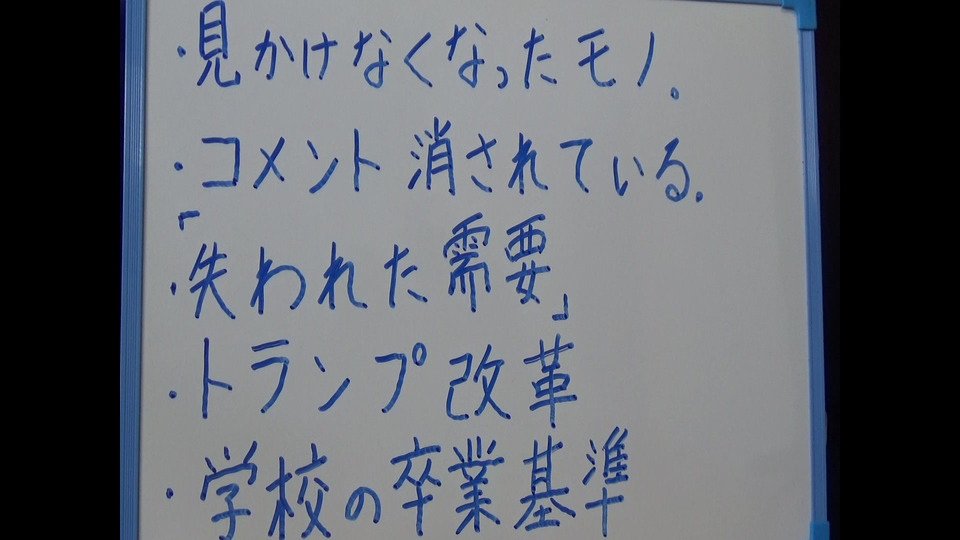 ・見かけなくなったモノ。
・コメント消されている.
・「失われた需要」
・トランプ改革
・学校の卒業基準